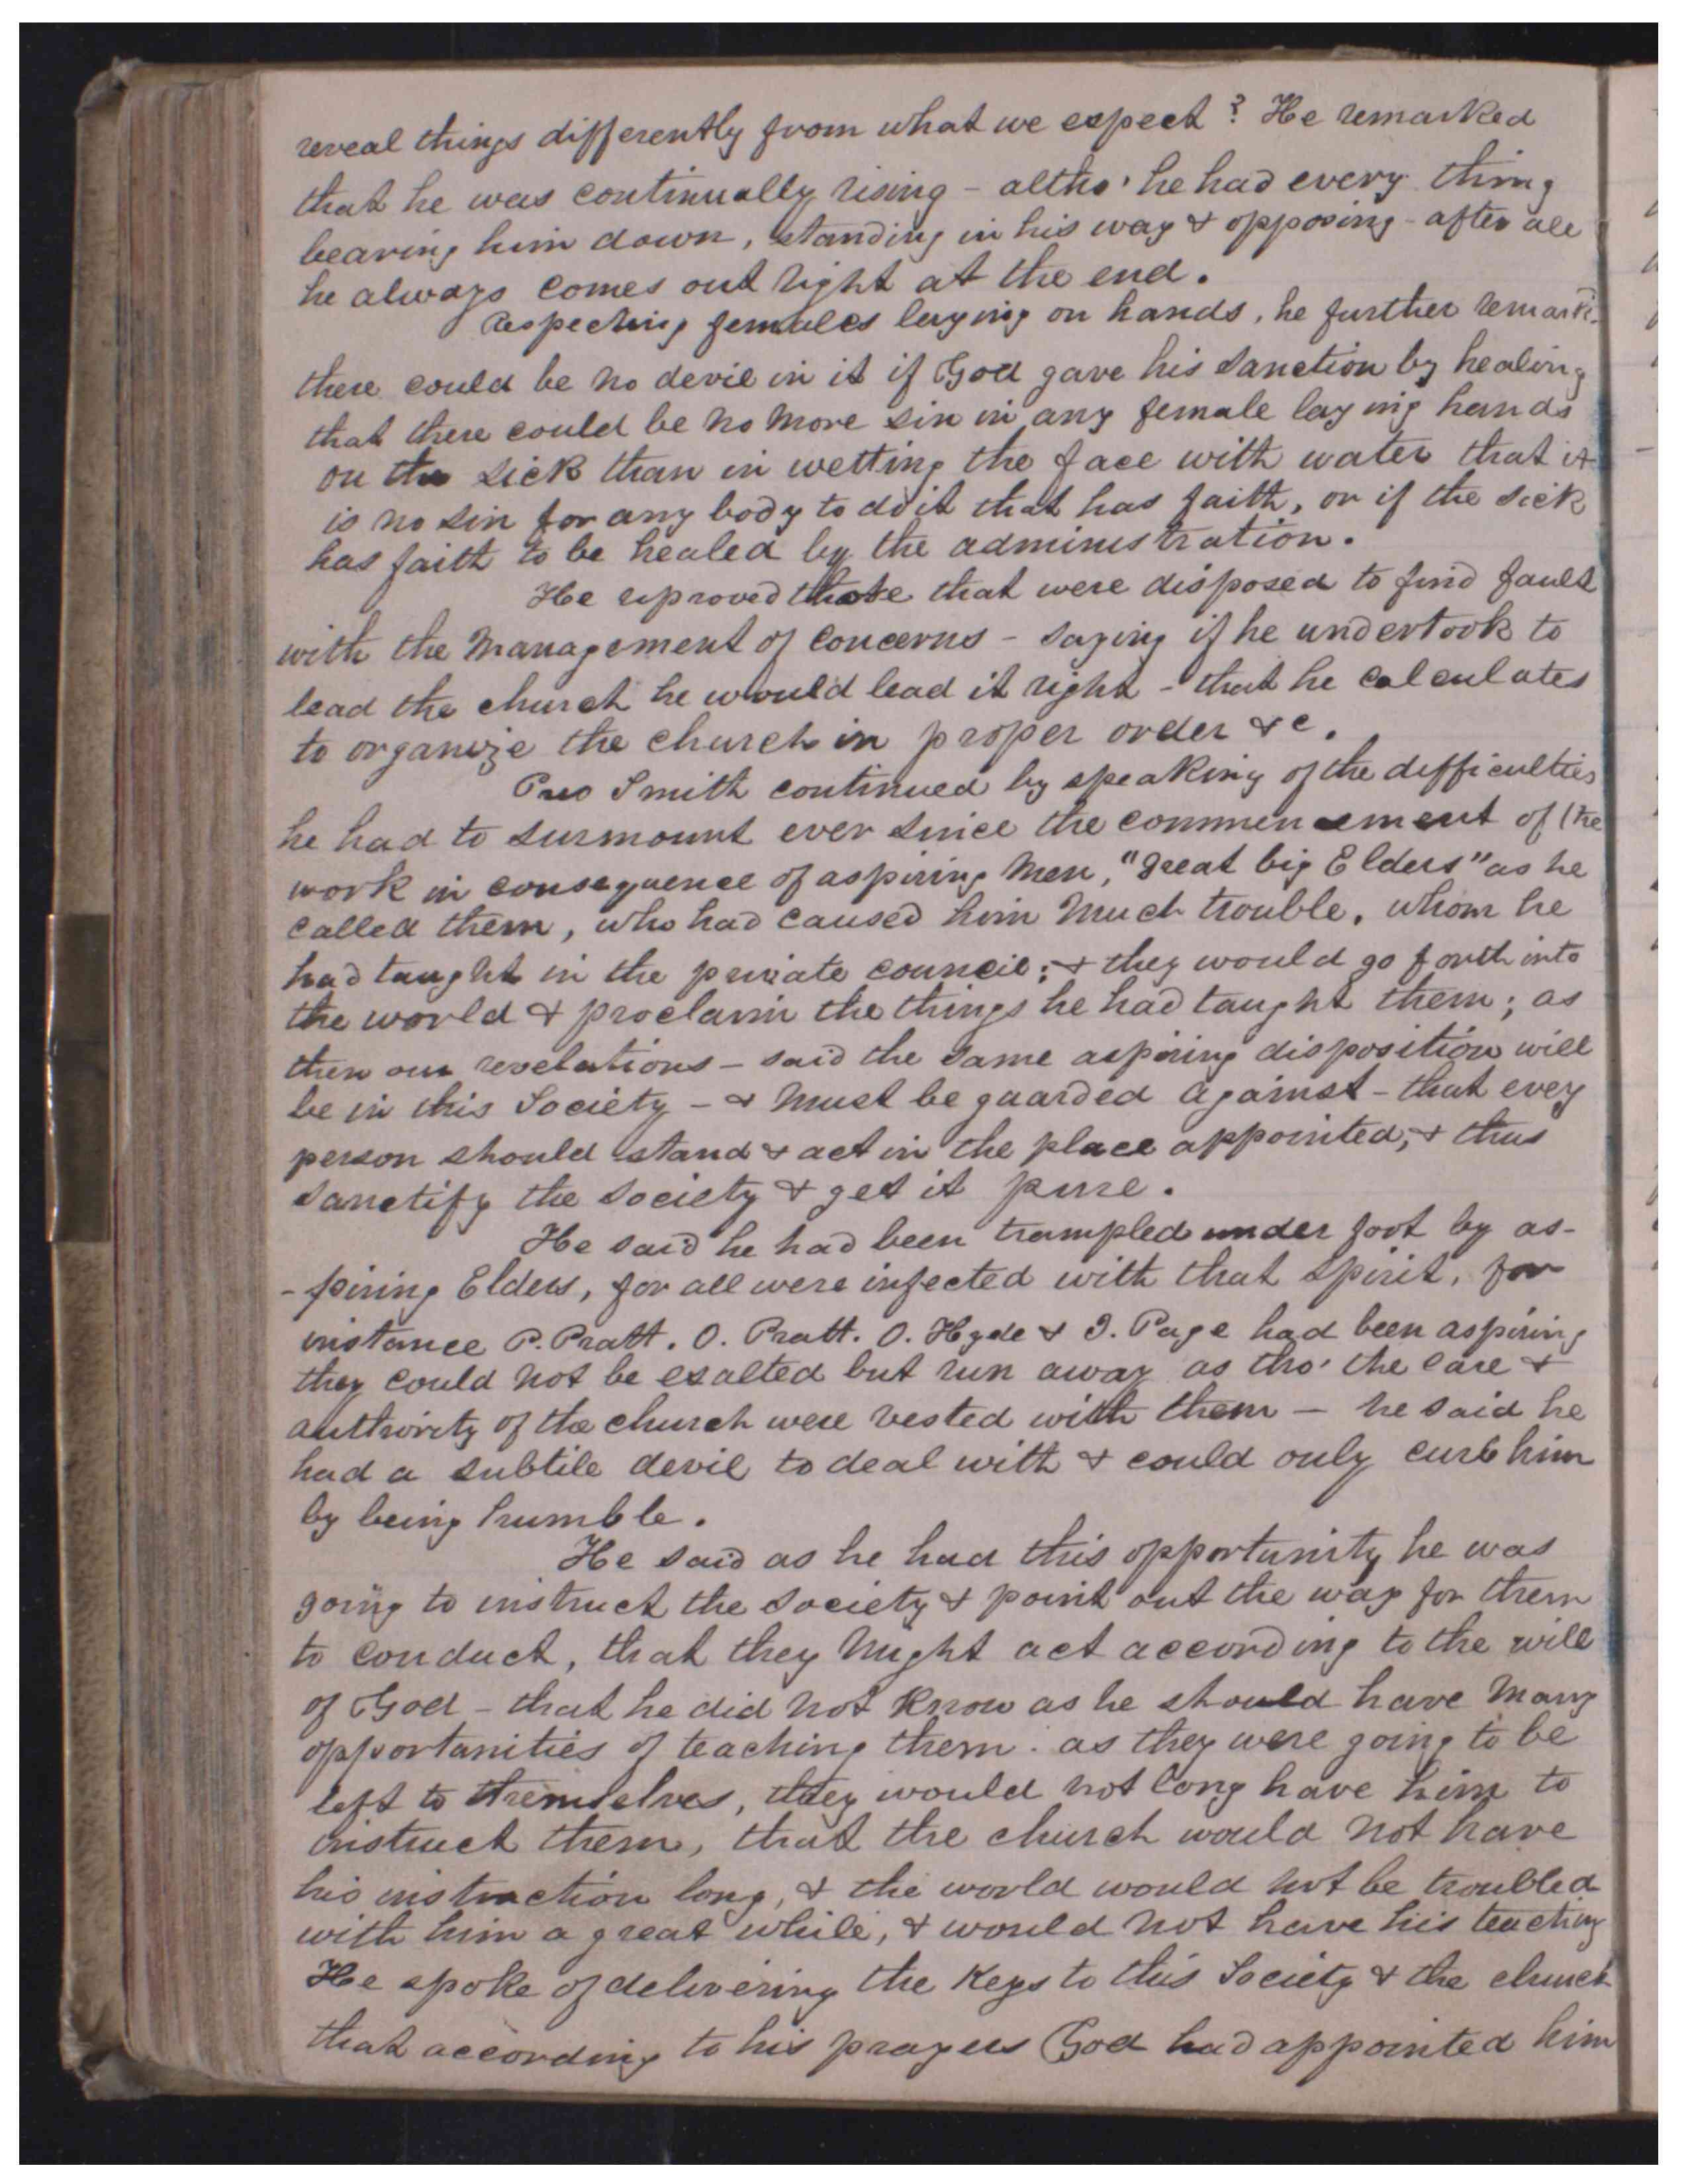 reveal things differently from what we expect? He remarked
that he was continually rising - altho' he had every thing
bearing him down, standing in his way & opposing - after all
he always comes out right at the end.
Respecting females laying on hands, he further remark'd
there could be no devil in it if God gave his sanction by healing
that there could be no more sin in any female laying hands
on the sick than in wetting the face with water that it
is no sin for any body to do it that has faith, or if the sick
has faith to be healed by the administration.
He reproved those that were disposed to find fault
with the management of concerns - saying if he undertook to
lead the church he would lead it right - that he calculates
to organize the church in proper order &c.
Pres Smith continued by speaking of the difficulties
he had to surmount ever since the commencement of the
work in consequence of aspiring men, "great big Elders" as he
called them, who had caused him much trouble, whom he
had taught in the private council; & they would go forth into
the world & proclaim the things he had taught them; as
their own revelations - said the same aspiring disposition will
be in this Society - & must be guarded against - that every
person should stand & act in the place appointed, & thus
sanctify the society & get it pure.
He said he had been trampled under foot by as-
-piring Elders, for all were infected with that spirit, for
instance P. Pratt. O. Pratt. O. Hyde & J. Page had been aspiring
they could not be exalted but run away as tho' the care &
authority of the church were vested with them - he said he
had a subtile devil to deal with & could only curb him
by being humble.
He said as he had this opportunity he was
going to instruct the society & point out the way for them
to conduct, that they might act according to the will
of God - that he did not know as he should have many
opportunities of teaching them. as they were going to be
left to themselves, they would not long have him to
instruct them, that the church would not have
his instruction long, & the world would not be troubled
with him a great while, & would not have his teaching
He spoke of delivering the Keys to this Society & the church
that according to his prayers God had appointed him